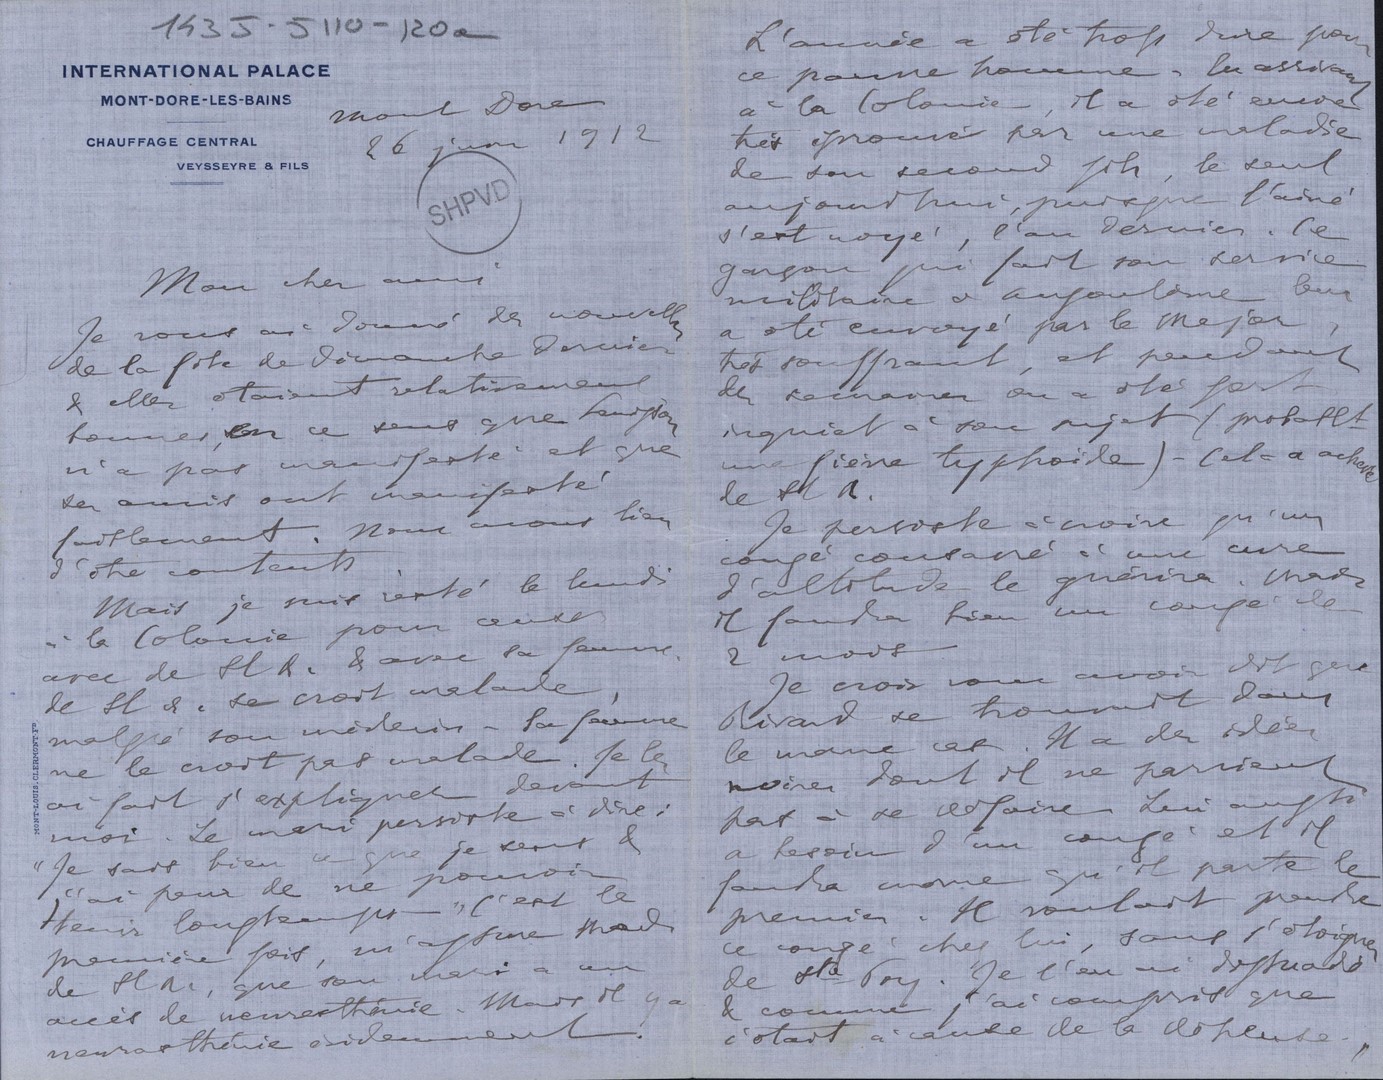 1435-5110-120a
INTERNATIONAL PALACE
MONT-DORE-LES-BAINS
CHAUFFAGE CENTRAL
VEYSSEYRE & FILS
Mont Dore
26 juin 1912
SHPVD
Mon cher ami
Je vous ai donné des nouvelles
de la fête de dimanche dernier
& elles étaient relativement
bonnes, en ce sens que
n'a pas manifesté et que
ses amis ont manifesté
faiblement. Nous avons lieu
d'être contents
Mais je suis resté le lundi
à la Colonie pour causer
avec de St R. & avec sa femme.
de St R. se croit malade,
malgré son médecin - Sa femme
ne le croit pas malade. Je les
ai fait s'expliquer devant
moi. Le mari persiste à dire :
"Je sais bien ce que je sens &
j'ai peur de ne pouvoir
tenir longtemps - " C'est la
première fois, m'assure Mad.
de St R., que son mari a un
accès de neurasthénie. Mais il y a
neurasthénie évidemment.
MONT-LOUIS, CLERMONT-Fd
L'année a été trop dure pour
ce pauvre homme - En arrivant
à la Colonie, il a été encore
très éprouvé par une maladie
de son second fils, le seul
aujourd'hui, puisque l'aîné
s'est noyé, l'an dernier. Ce
garçon qui fait son service
militaire à Angoulême leur
a été envoyé par le Major,
très souffrant, et pendant
des semaines on a été fort
inquiet à son sujet (probablt
une fièvre typhoïde) - Cela a achevé
de St R.
Je persiste à croire qu'un
congé consacré à une cure
d'altitude le guérira. Mais
il faudra bien un congé de
2 mois
Je crois vous avoir dit que
Rivard se trouvait dans
le même cas. Il a des idées
noires dont il ne parvient
pas à se défaire. Lui aussi
a besoin d'un congé et il
faudra même qu'il parte le
premier. Il voulait prendre
ce congé chez lui, sans s'éloigner
de Ste Foy. Je l'en ai dissuadé
& comme j'ai compris que
c'était à cause de la dépense -